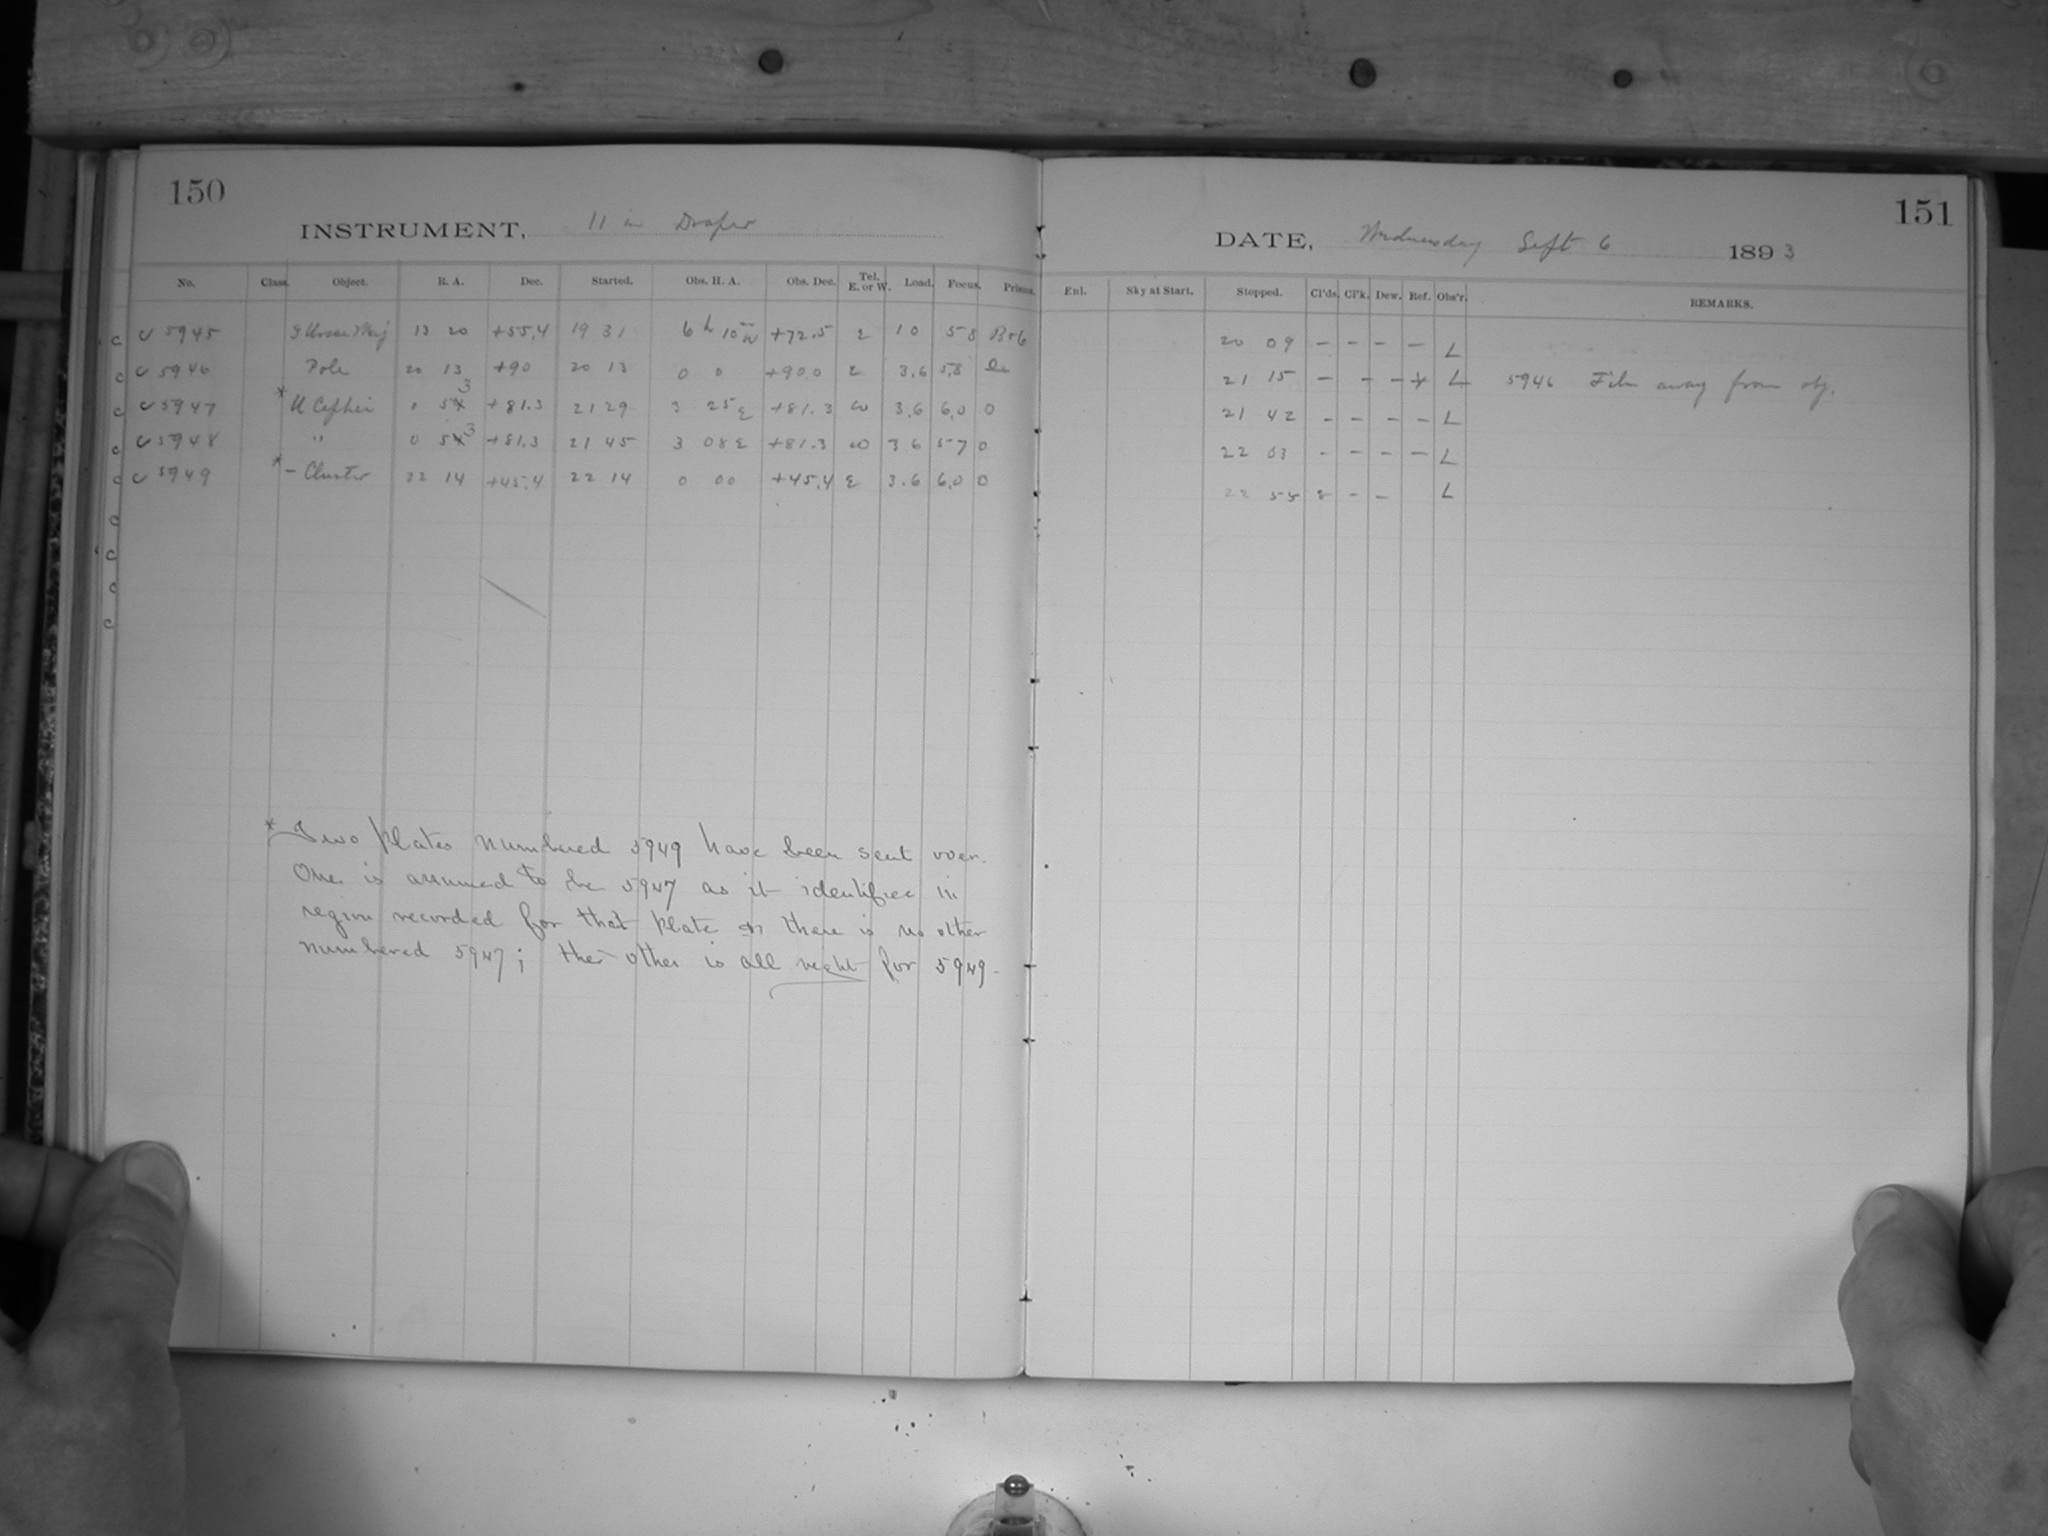 150
INSTRUMENT, 11 in Draper
No. Class. Object. R. A. Dec. Started. Obs. H. A. Obs. Dec. Tel. E. or W. Load. Focus. Prisms.
c 5945 13 20 +55.4 19 31 6 h 10 m W +72.5 E 10 5 8
c 5946 Pole 20 13 +90 20 13 0 0 +90 0 E 3.6 5.8
* c 5947 U Cephei 0 54 3 +81.3 21 29 3 25 E +81.3 W 3.6 6.0 0
c 5948 " 0 54 3 +81.3 21 45 3 08 E +81.3 W 3 6 5 7 0
* c 5949 - Cluster 22 14 +45.4 22 14 0 00 +45.4 E 3.6 6.0 0
* Two plates numbered 5949 have been sent over.
One is assumed to be 5947 as it identifies in
region recorded for that plate & there is no other
numbered 5947; the other is all right for 5949-
151
DATE, Wednesday Sept 6 1893
Enl. Sky at Start. Stopped. Cl'ds. Cl'k. Dew. Ref. Obs'r. REMARKS.
20 09 - - - - L
21 15 - - - + L 5946 Film away from obj.
21 42 - - - - L
22 03 - - - - L
22 L